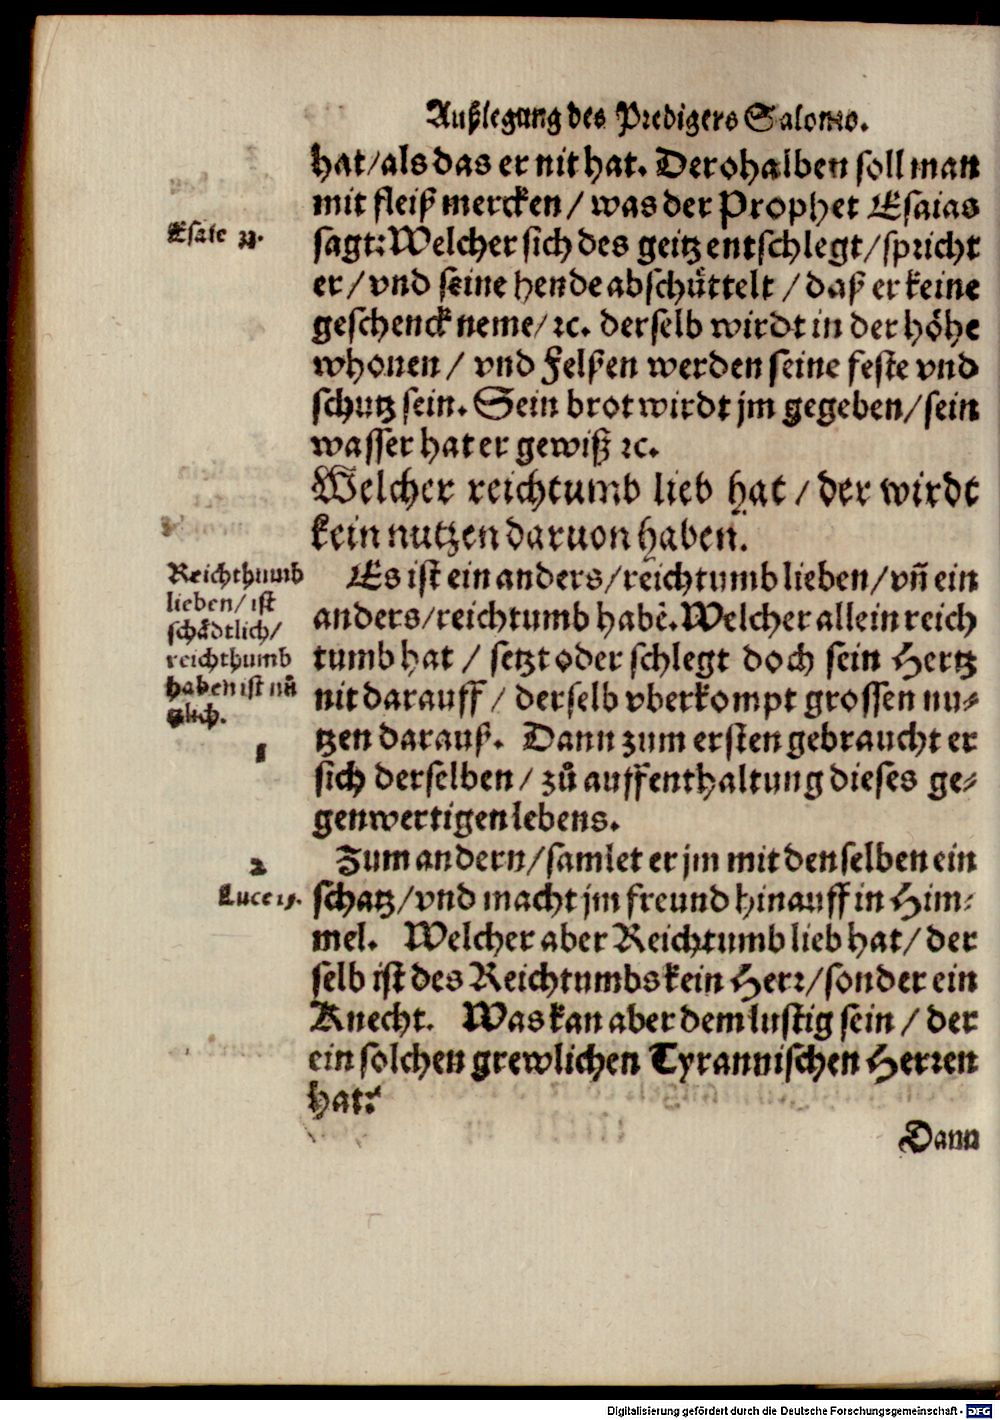 Außlegung des Predigers Salomo.
hat/als das er nit hat. Derohalben soll man
mit fleiß mercken/ was der Prophet Esaias
Esaie 33.
sagt: Welcher sich des geitz entschlegt/spricht
er/ vnd seine hende abschüttelt/ daß er keine
geschenck neme/ ꝛc. derselb wirdt in der höhe
whonen/ vnd Felßen werden seine feste vnd
schutz sein. Sein brot wirdt jm gegeben/sein
wasser hat er gewiß ꝛc.
Welcher reichtumb lieb hat/ der wirdt
kein nutzen daruon haben.
Reichthumb
lieben/ ist
schädtlich/
reichthumb
haben ist nů
tzlich.
Es ist ein anders/reichtumb lieben/vñ ein
anders/reichtumb habẽ. Welcher allein reich
tumb hat/ setzt oder schlegt doch sein Hertz
nit darauff/ derselb vberkompt grossen nu⸗
tzen darauß. Dann zum ersten gebraucht er
1
sich derselben/ zů auffenthaltung dieses ge⸗
genwertigen lebens.
2
Zum andern/samlet er jm mit denselben ein
Luce 15.
schatz/vnd macht jm freund hinauff in Him⸗
mel. Welcher aber Reichtumb lieb hat/ der
selb ist des Reichtumbs kein Herr/sonder ein
Knecht. Was kan aber dem lustig sein/ der
ein solchen grewlichen Tyrannischen Herren
hat?
Dann
Digitalisierung gefördert durch die Deutsche Forschungsgemeinschaft - DFG